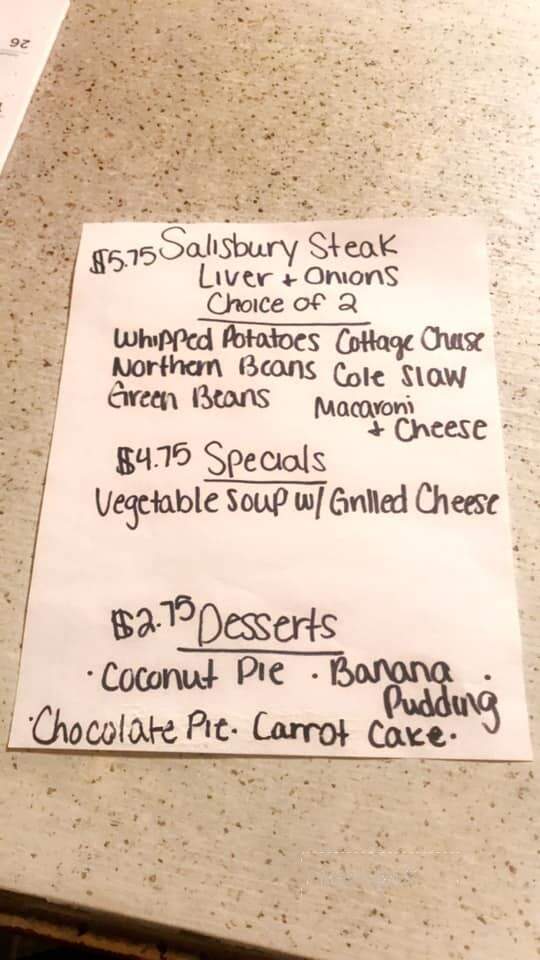 26
$5.75 Salisbury Steak
Liver + Onions
Choice of 2
Whipped Potatoes Cottage Cheese
Northern Beans Cole Slaw
Green Beans Macaroni
+ Cheese
$4.75 Specials
Vegetable Soup w/ Grilled Cheese
$2.75 Desserts
· Coconut Pie · Banana ·
Pudding
·Chocolate Pie· Carrot Cake·